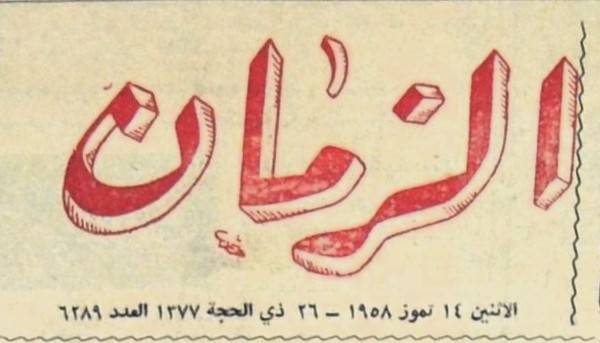 الزمان
الاثنين ١٤ تموز ١٩٥٨ – ٢٦ ذي الحجة ١٣٧٧ العدد ٦٢٨٩